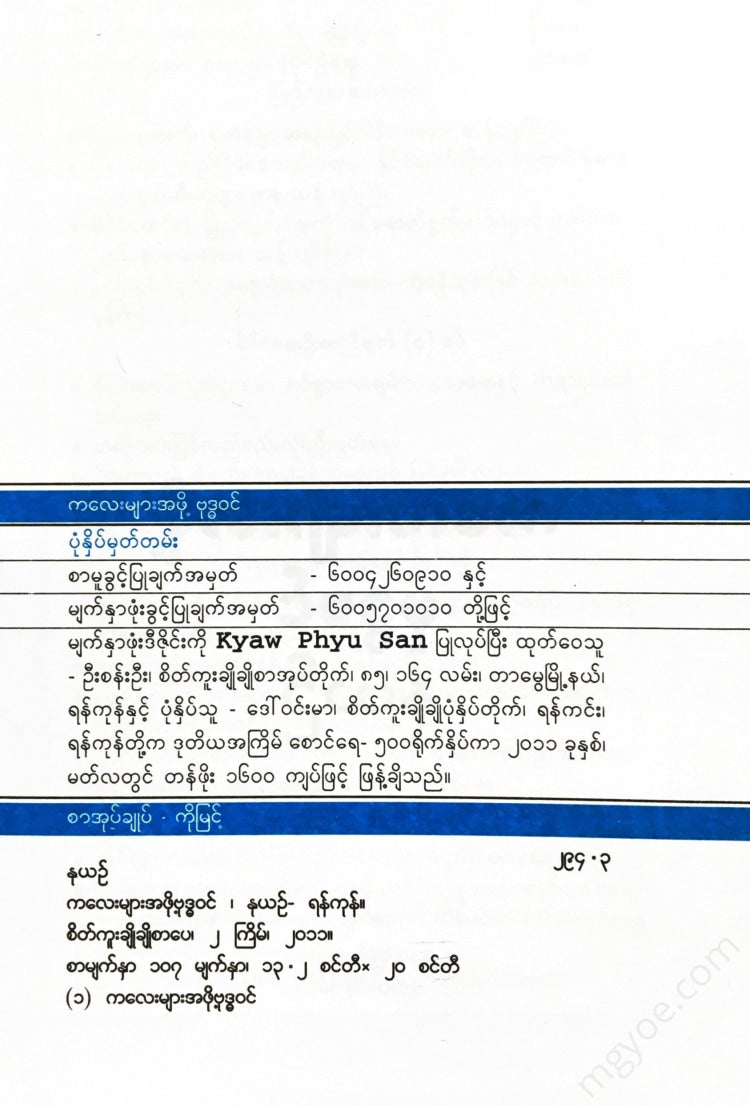 ကလေးများအဖို့ ဗုဒ္ဓဝင်
ပုံနှိပ်မှတ်တမ်း
စာမူခွင့်ပြုချက်အမှတ် - ၆၀၀၄၂၆၀၉၁၀ နှင့်
မျက်နှာဖုံးခွင့်ပြုချက်အမှတ် - ၆၀၀၅၇၀၁၀၁၀ တို့ဖြင့်
မျက်နှာဖုံးဒီဇိုင်းကို Kyaw Phyu San ပြုလုပ်ပြီး ထုတ်ဝေသူ
- ဦးစန်းဦး၊ စိတ်ကူးချိုချိုစာအုပ်တိုက်၊ ၈၅၊ ၁၆၄ လမ်း၊ တာမွေမြို့နယ်၊
ရန်ကုန်နှင့် ပုံနှိပ်သူ - ဒေါ်ဝင်းမာ၊ စိတ်ကူးချိုချိုပုံနှိပ်တိုက်၊ ရန်ကင်း၊
ရန်ကုန်တို့က ဒုတိယအကြိမ် စောင်ရေ- ၅၀၀ရိုက်နှိပ်ကာ ၂၀၁၁ ခုနှစ်၊
မတ်လတွင် တန်ဖိုး ၁၆၀၀ ကျပ်ဖြင့် ဖြန့်ချိသည်။
စာအုပ်ချုပ် - ကိုမြင့်
၂၉၄.၃
နယဉ်
ကလေးများအဖို့ဗုဒ္ဓဝင် ၊ နယဉ်- ရန်ကုန်။
စိတ်ကူးချိုချိုစာပေ၊ ၂ ကြိမ်၊ ၂၀၁၁။
စာမျက်နှာ ၁၀၇ မျက်နှာ၊ ၁၃.၂ စင်တီ× ၂၀ စင်တီ
(၁) ကလေးများအဖို့ဗုဒ္ဓဝင်
mgyoe.com